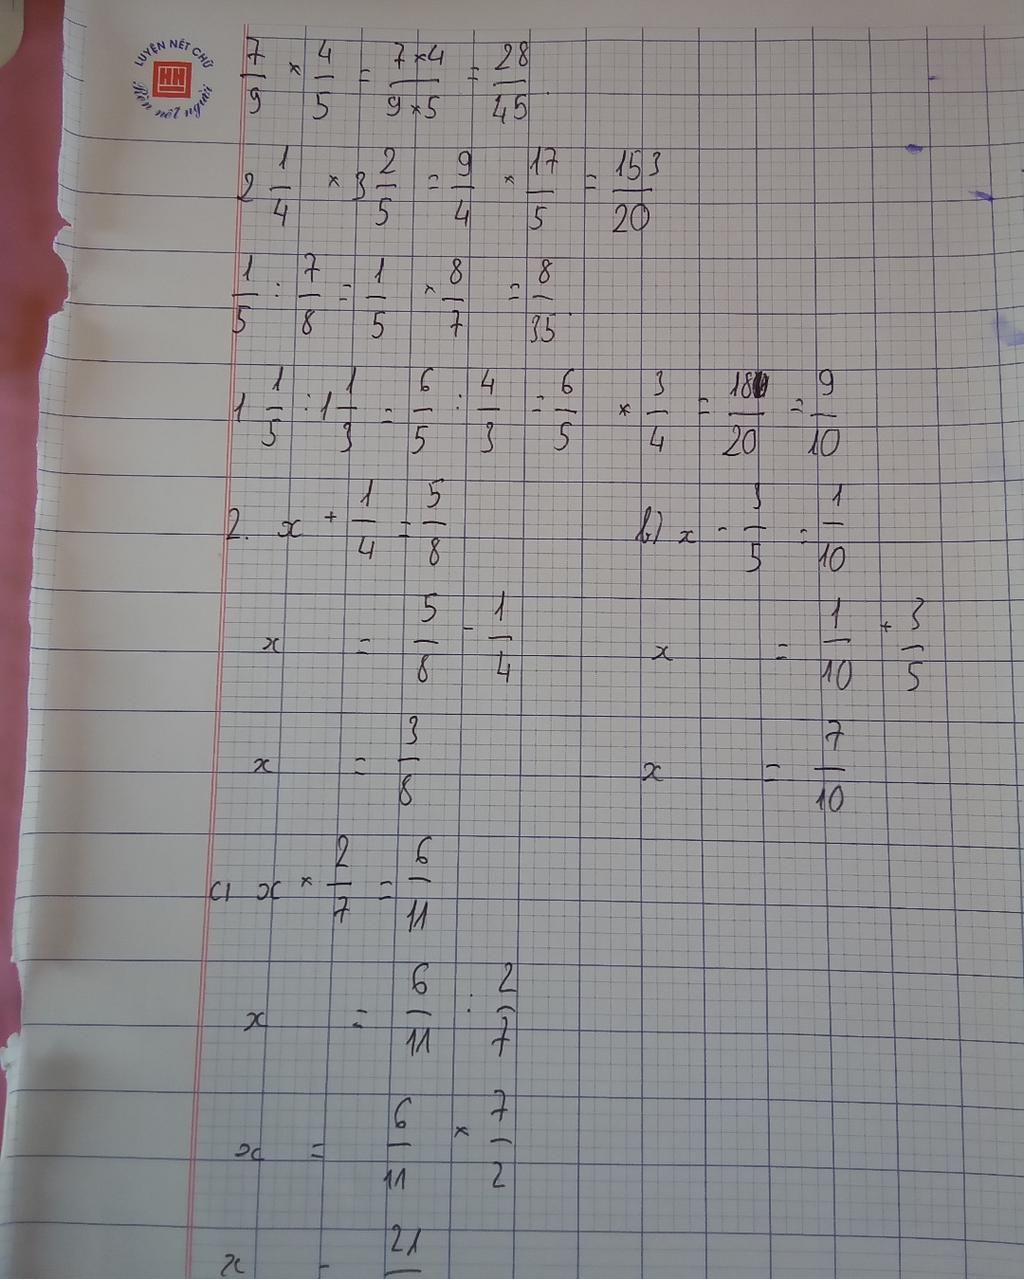 LUYỆN NÉT CHỮ
HH
Rèn nết người
7/9 × 4/5 = 7×4/9×5 = 28/45
2 1/4 × 3 2/5 = 9/4 × 17/5 = 153/20
1/5 : 7/8 = 1/5 × 8/7 = 8/35
1 1/5 : 1 1/3 = 6/5 : 4/3 = 6/5 × 3/4 = 18/20 = 9/10
2. x + 1/4 = 5/8 b) x - 3/5 = 1/10
x = 5/8 - 1/4 x = 1/10 + 3/5
x = 3/8 x = 7/10
c) x × 2/7 = 6/11
x = 6/11 : 2/7
x = 6/11 × 7/2
x = 21